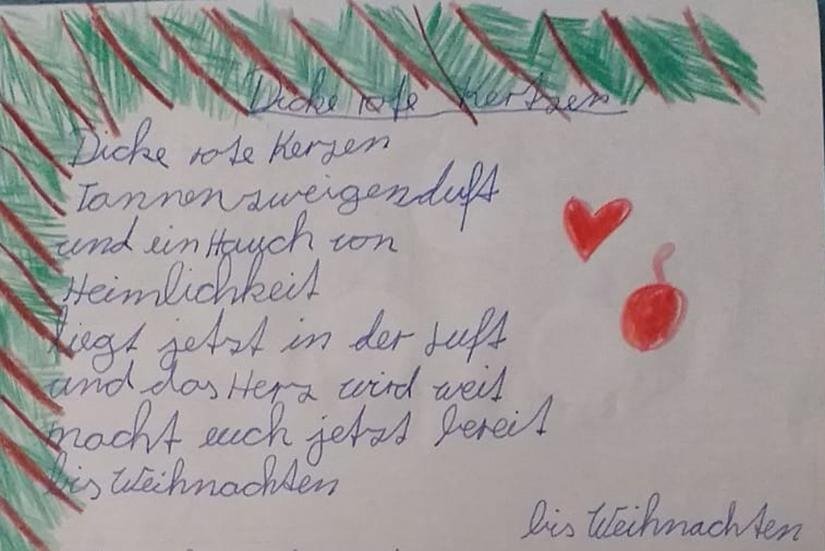 Dicke rote Kertzen
Dicke rote Kerzen
Tannenzweigenduft
und ein Hauch von
Heimlichkeit
liegt jetzt in der Luft
und das Herz wird weit
macht euch jetzt bereit
bis Weihnachten
bis Weihnachten